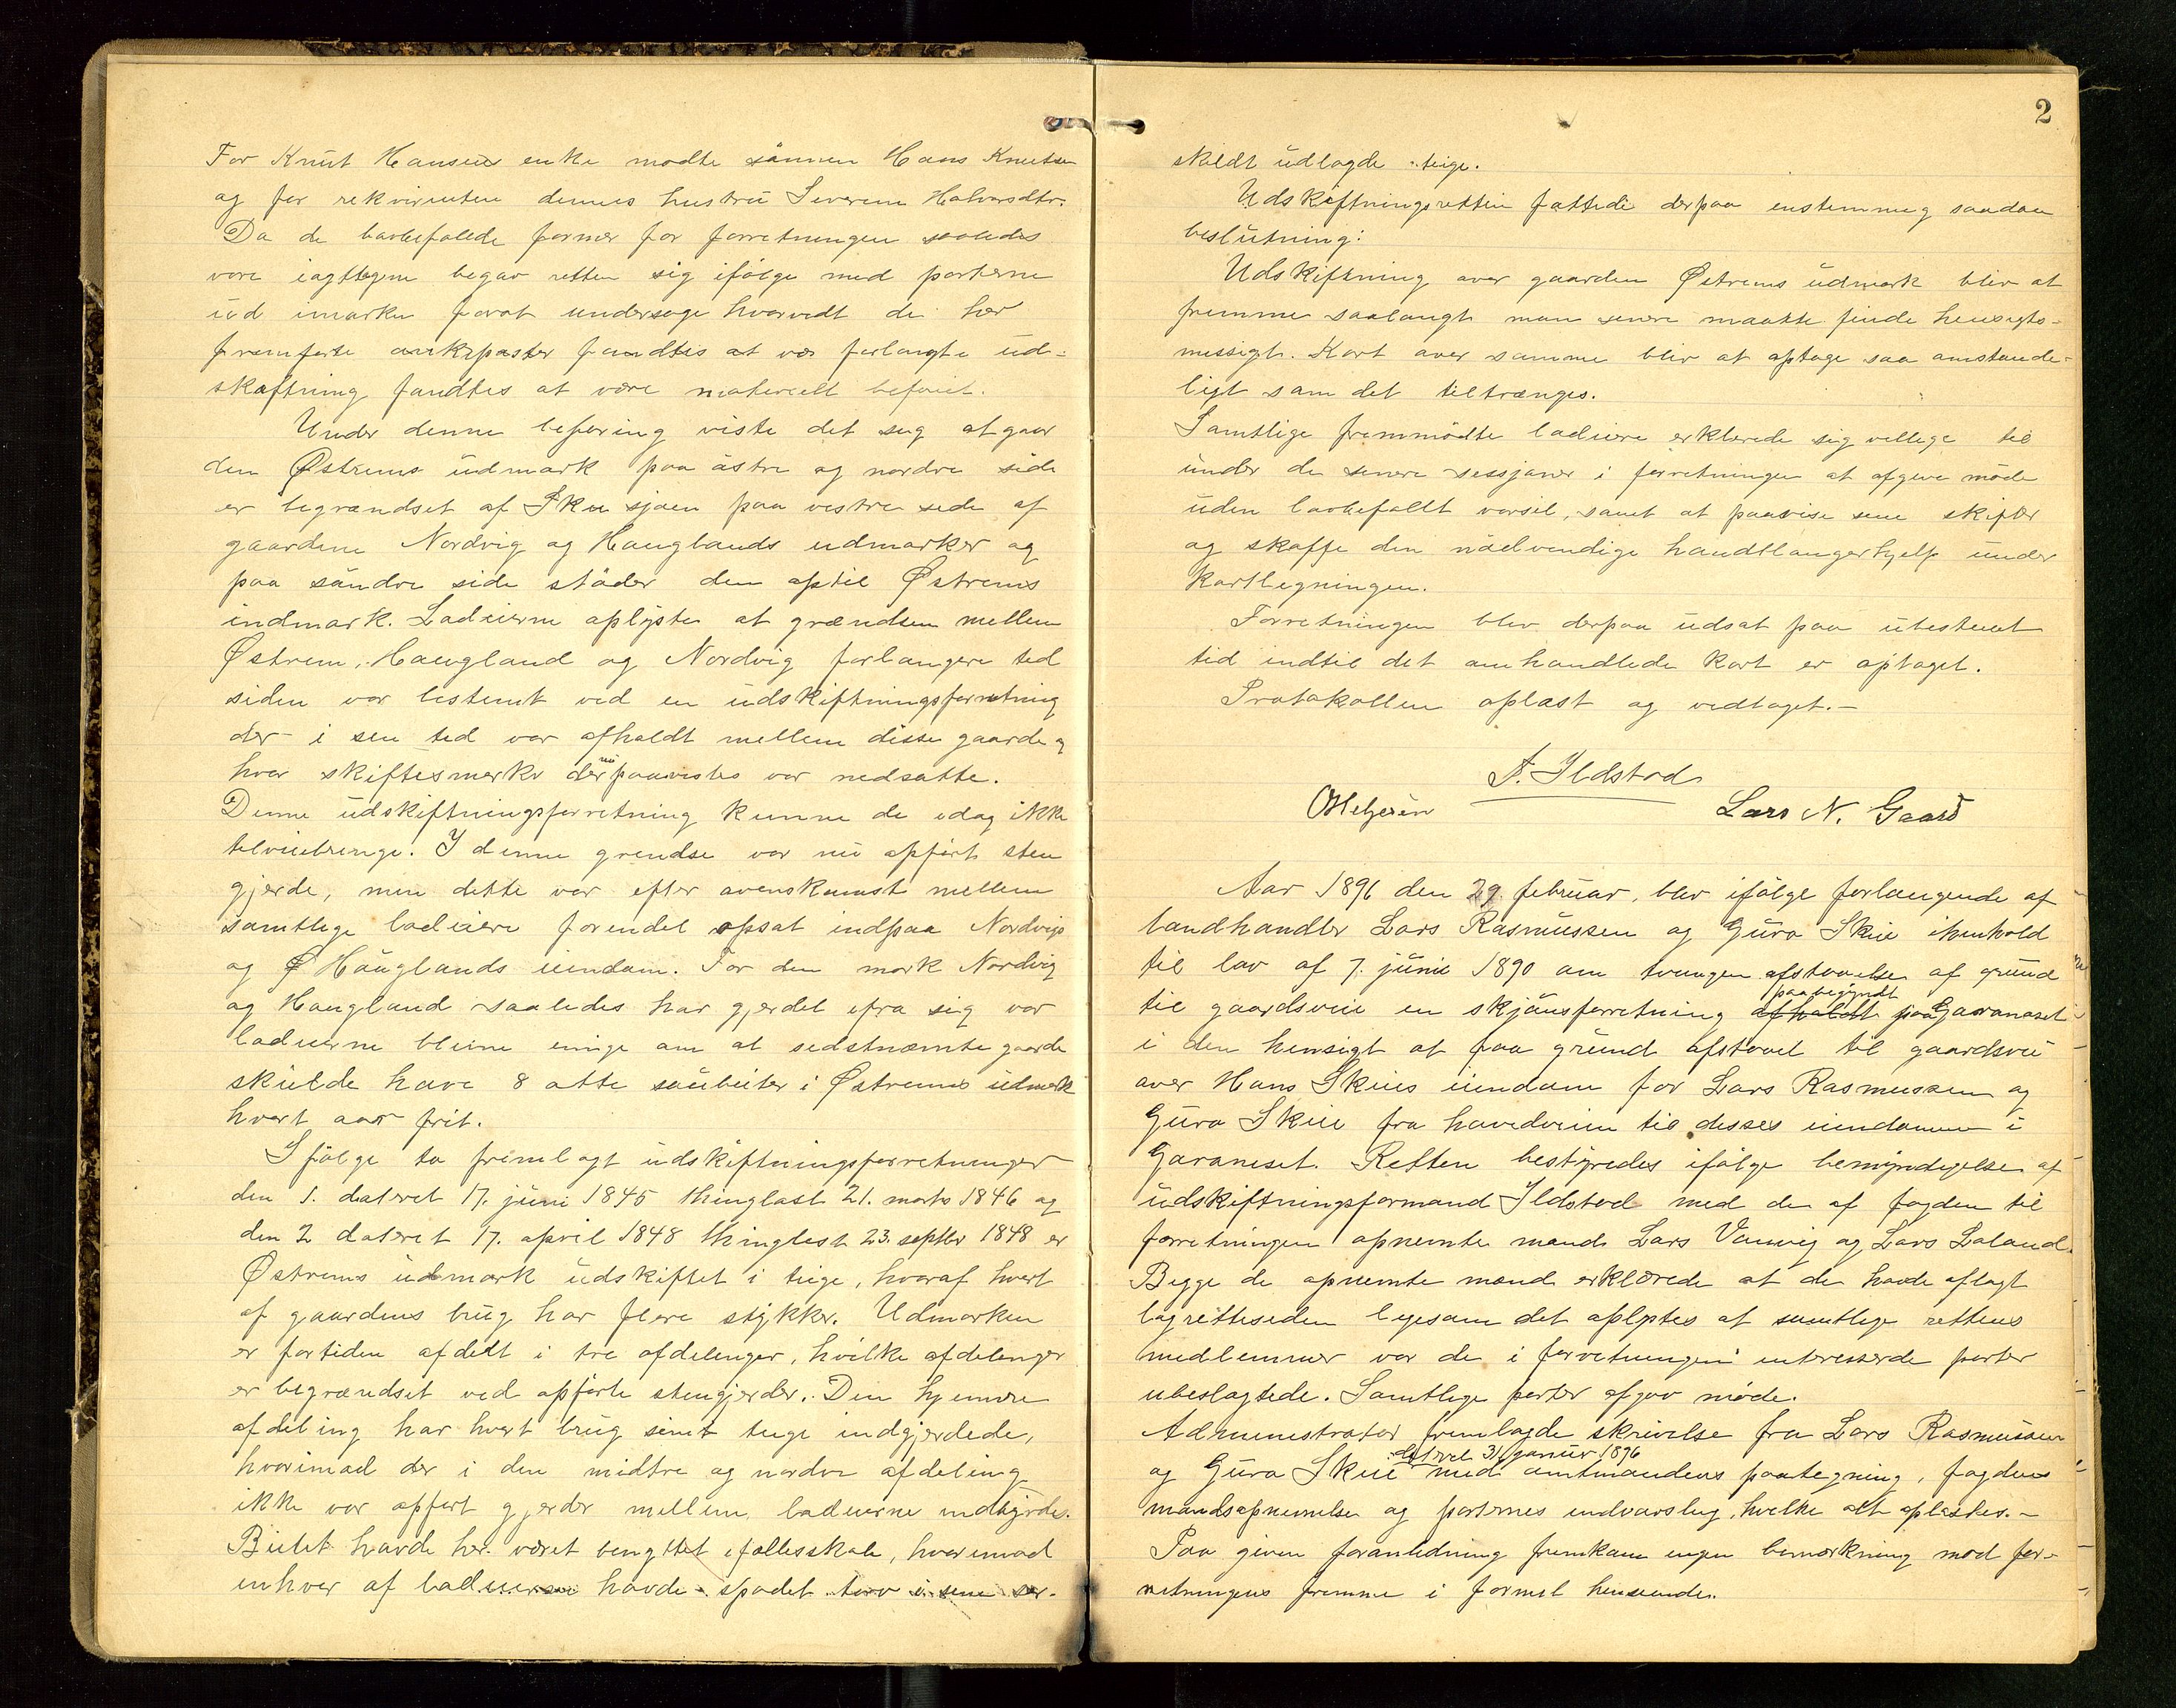 For Knut Hansens enke mødte sønnen Hans Knutsen
og for rekvirenten dennes hustru Severine Halvorsdtr.
Da de lovbefalede former for forretningen saaledes
vare iagttagne begav retten sig ifølge med parterne
ud i marken forat undersøge hvorvidt de her
fremførte ankeposter fandtes at vær forlangte ud-
skiftning fandtes at være materielt beføiet.
Under denne befaring viste det sig at gaar
den Østrems udmark paa østre og nordre side
er begrændset af Skuesjøen paa vestre side af
gaardene Nordvig og Hauglands udmarker og
paa søndre side støder den optil Østrems
indmark. Lodeierne oplyste at grændsen mellem
Østrem, Haugland og Nordvig forlængere tid
siden var bestemt ved en udskiftningsforretning
der i sin tid var afholdt mellem disse gaarde og
hvor skiftesmerker der nu paavistes var nedsatte.
Denne udskiftningsforretning kunne de idag ikke
tilveiebringe. I denne grendse var nu opført sten
gjerde, men dette var efter overenskomst mellem
samtlige lodeiere forendel opsat indpaa Nordvigs
og Ø Hauglands eiendom. For den mark Nordvig
og Haugland saaledes har gjerdet ifra sig var
lodeierne blevne enige om at sidstnæmte gaarde
skulde have 8 otte saubeiter i Østrems udmark
hvert aar frit.
Ifølge to fremlagt udskiftningsforretninger
den 1. dateret 17. juni 1845 thinglæst 21. marts 1846 og
den 2 dateret 17. april 1848 thinglest 23. septbr 1848 er
Østrems udmark udskiftet i teige, hvoraf hvert
af gaardens brug har flere stykker. Udmarken
er fortiden afdelt i tre afdelinger, hvilke afdelinger
er begrændset ved opførte stengjerder. Den hjemre
afdeling har hvert brug sine teige indgjerdede,
hvorimod der i den midtre og nordre afdeling
ikke var opført gjerder mellem lodeierne indbyrdes.
Beitet havde her været benyttet i fællesskab, hvorimod
enhver af lodeierne havde spadet torv i sine sær-
2
skildt udlagde teige.
Udskiftningsretten fattede derpaa enstemmig saadan
beslutning:
Udskiftning over gaarden Østrems udmark bliv at
fremme saalangt man senere maatte finde hensigts-
messigt. Kart over samme bliv at optage saa omstænde-
ligt som det tiltrænges.
Samtlige fremmødte lodeiere erklærede sig villige til
under de senere sessjoner i forretningen at afgive møde
uden lovbefallt varsel, samt at paavise sine skifter
og skaffe den nødvendige haandtlangerhjelp under
kartlegningen.
Forretningen blev derpaa udsat paa ubestemt
tid indtil det omhandlede kart er optaget.
Protokollen oplæst og vedtaget.-
F. Ildstad
Lars N. Gaard
Aar 1896 den 29. februar, blev ifølge forlangende af
landhandler Lars Rasmussen og Guro Skeie i henhold
til lov af 7. juni 1890 om tvungen afstaaelse af grund
til gaardsveie en skjønsforretning afholdt paabegyndt paa Garanaset
i den hensigt at faa grund afstaaet til gaardsvei
over Hans Skeies eiendom for Lars Rasmussen og
Guro Skeie fra hovedveien til disses eiendomme i
Garaneset. Retten bestyredes ifølge bemyndigelse af
udskiftningsformand Ildstad med de af fogden til
forretningen opnemte mænd Lars Vanvig og Lars Laland.
Begge de opnemte mænd erklærede at de havde aflagt
lagrettesedén ligesom det oplystes at samtlige rettens
medlemmer var de i forretningen interesserede parter
ubeslægtede. Samtlige parter afgav møde.
Administrator fremlagde skrivelse fra Lars Rasmussen
og Guro Skeie dateret 31 januar 1896 med amtmandens paategning, fogdens
mandsopnemnelse og parternes indvarsling, hvilke alt oplæstes.-
Paa given foranledning fremkom ingen bemærkning mod for-
retningens fremme i formel henseende.